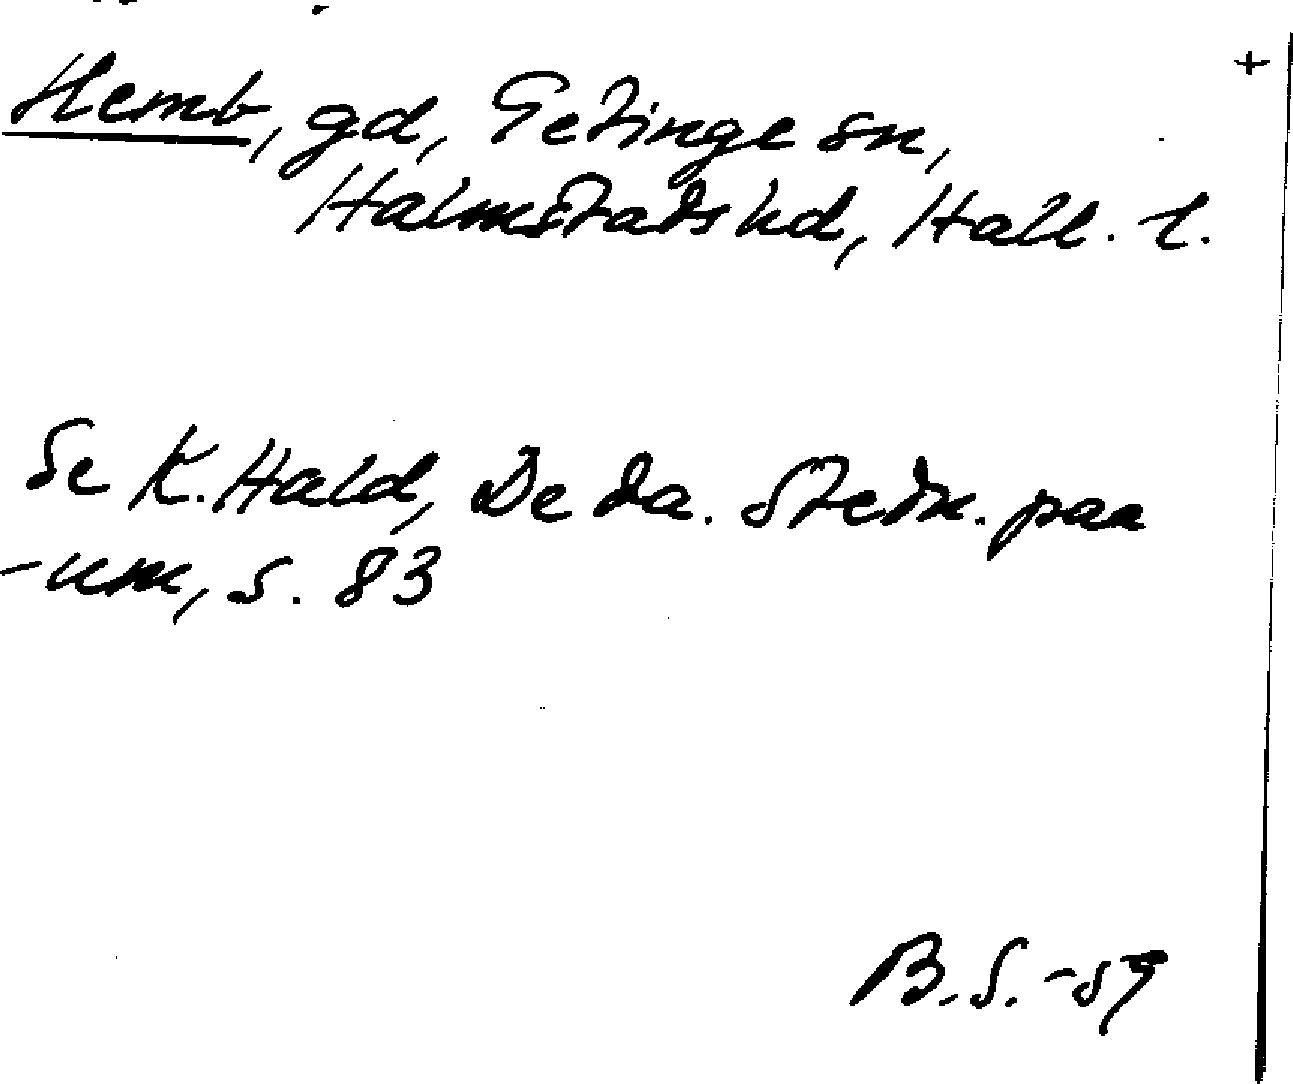 +
Hemb, gd, Getinge sn,
Halmstads hd, Hall. l.
Se K. Hald, De da. Stedn. paa
-um, s. 83
B.S. -59